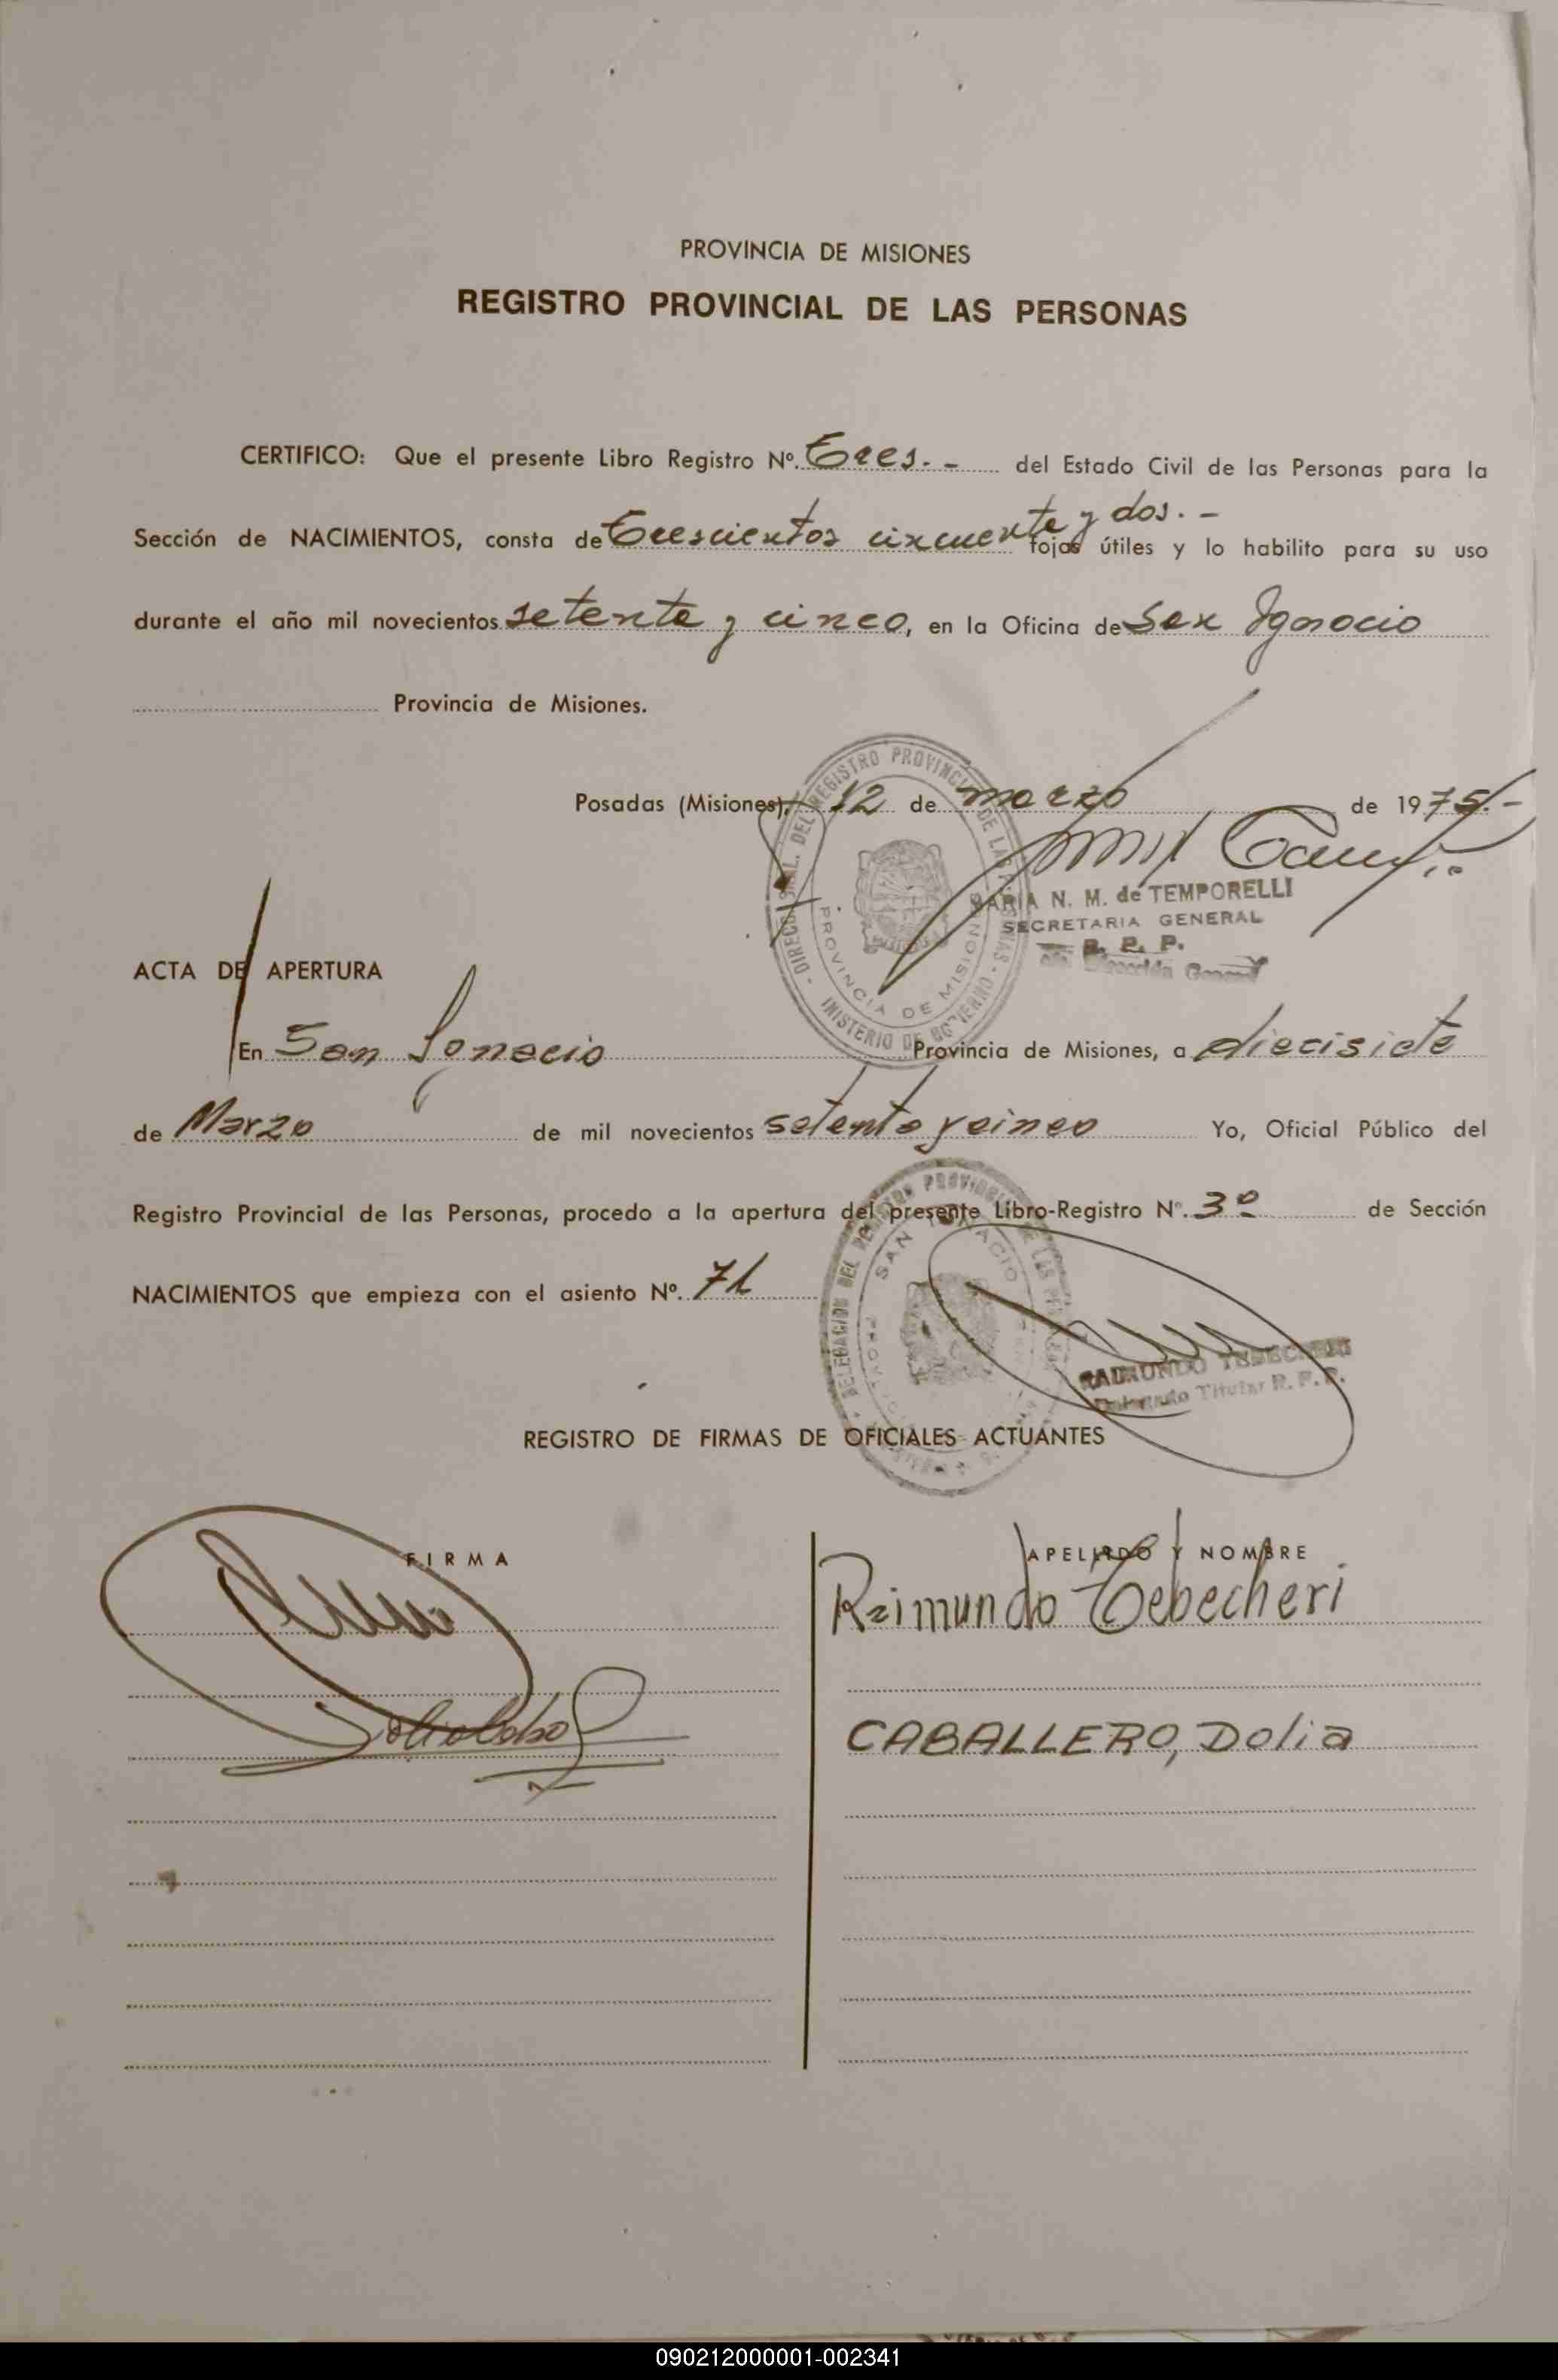 PROVINCIA DE MISIONES
REGISTRO PROVINCIAL DE LAS PERSONAS
CERTIFICO: Que el presente Libro Registro Nº. Tres.- del Estado Civil de las Personas para la
Sección de NACIMIENTOS, consta de Trescientos cincuenta y dos.- fojas útiles y lo habilito para su uso
durante el año mil novecientos setenta y cinco, en la Oficina de San Ignacio
Provincia de Misiones.
Posadas (Misiones), 12 de marzo de 1975.-
MARIA N. M. de TEMPORELLI
SECRETARIA GENERAL
R. P. P.
DIRECC. GRAL. DEL REGISTRO PROVINCIAL DE LAS PERSONAS - MINISTERIO DE GOBIERNO -
PROVINCIA DE MISIONES
ACTA DE APERTURA
En San Ignacio Provincia de Misiones, a diecisiete
de Marzo de mil novecientos setenta y cinco Yo, Oficial Público del
Registro Provincial de las Personas, procedo a la apertura del presente Libro-Registro Nº. 3º de Sección
NACIMIENTOS que empieza con el asiento Nº. 71
DELEGACION DEL REGISTRO PROVINCIAL DE LAS PERSONAS
SAN IGNACIO
RAIMUNDO TEBECHERI
Delegado Titular R. P. P.
REGISTRO DE FIRMAS DE OFICIALES ACTUANTES
FIRMA APELLIDO Y NOMBRE
Raimundo Tebecheri
CABALLERO, Dolia
090212000001-002341